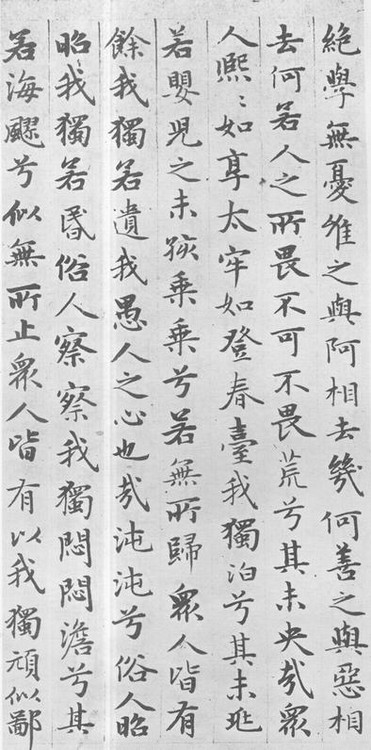 絕學無憂唯之與阿相去幾何善之與惡相
去何若人之所畏不可不畏荒兮其未央哉衆
人熙〻如享太牢如登春臺我獨泊兮其未兆
若嬰兒之未孩乘乘兮若無所歸衆人皆有
餘我獨若遺我愚人之心也哉沌沌兮俗人昭
昭我獨若昬俗人察察我獨悶悶澹兮其
若海飂兮似無所止衆人皆有以我獨頑似鄙